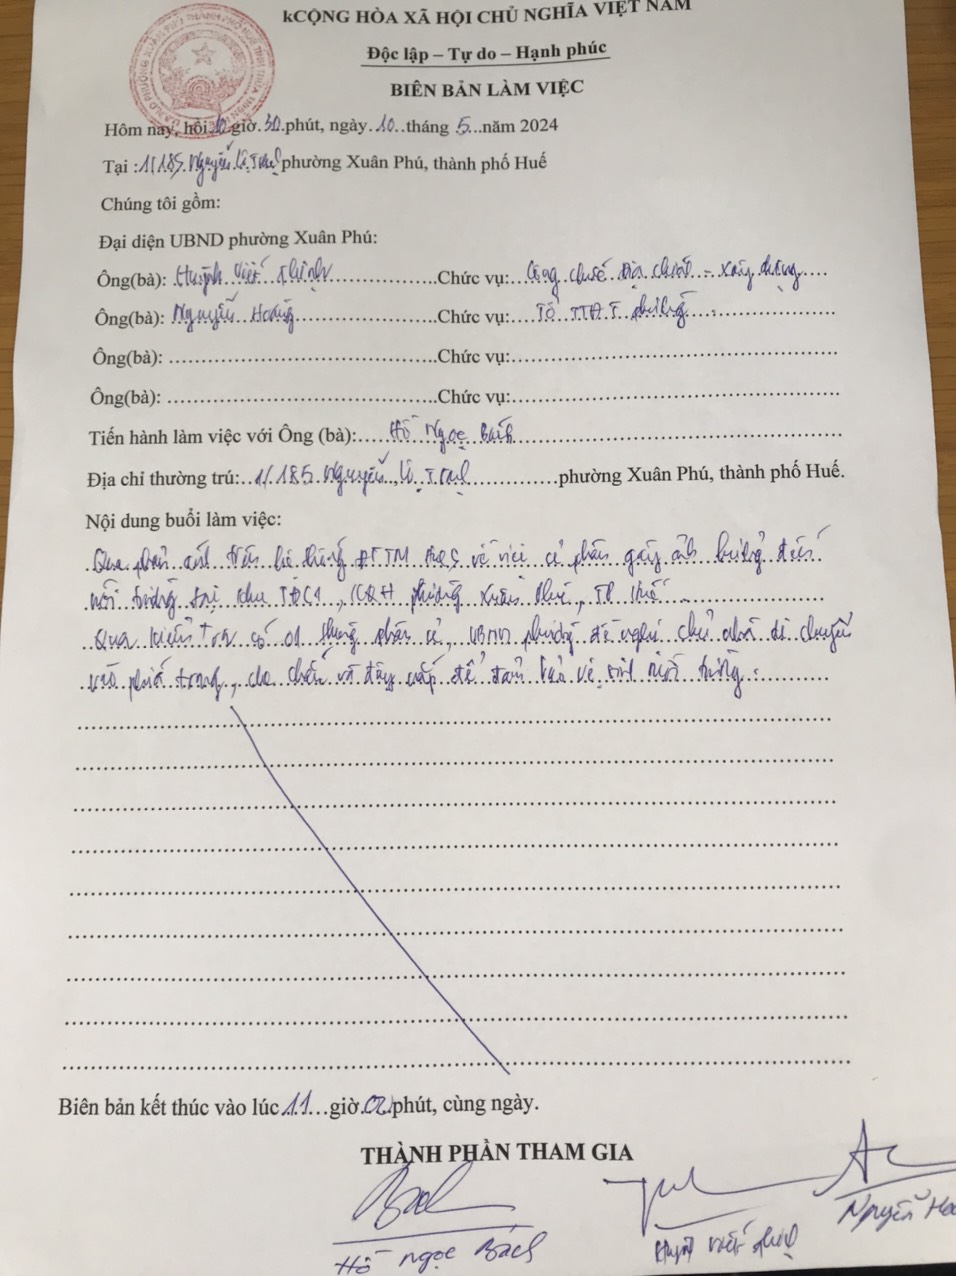 kCỘNG HÒA XÃ HỘI CHỦ NGHĨA VIỆT NAM
Độc lập – Tự do – Hạnh phúc
BIÊN BẢN LÀM VIỆC
Hôm nay, hồi 10 giờ 30 phút, ngày 10 tháng 5 năm 2024
Tại : 1/185 Nguyễn Lộ Trạch phường Xuân Phú, thành phố Huế
Chúng tôi gồm:
Đại diện UBND phường Xuân Phú:
Ông(bà): Huỳnh Viết Thịnh Chức vụ: Công chức Địa chính - Xây dựng
Ông(bà): Nguyễn Hoàng Chức vụ: Tổ TTĐT phường
Ông(bà): Chức vụ:
Ông(bà): Chức vụ:
Tiến hành làm việc với Ông (bà): Hồ Ngọc Bách
Địa chỉ thường trú: 1/185 Nguyễn Lộ Trạch phường Xuân Phú, thành phố Huế.
Nội dung buổi làm việc:
Qua phản ánh trên hệ thống ĐTTM về việc cá phân gây ảnh hưởng đến
môi trường tại khu TĐC1, phường Xuân Phú, TP Huế
Qua kiểm tra có 01 thùng phân cá, UBND phường đề nghị chủ nhà di chuyển
vào phía trong, che chắn và đậy nắp để đảm bảo vệ sinh môi trường.
Biên bản kết thúc vào lúc 11 giờ 02 phút, cùng ngày.
THÀNH PHẦN THAM GIA
Hồ Ngọc Bách Huỳnh Viết Thịnh Nguyễn Hoà